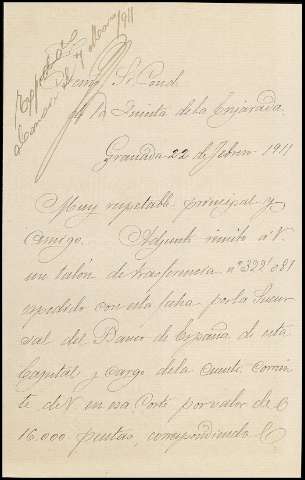 Excmo Sr Conde
de la Quinta de la Enjarada.
Granada 22 de Febrero 1911
Muy respetable principal y
amigo. Adjunto remito á V.
un talón de trasferencia nº
expedido con esta fecha por la Sucur
sal del Banco de España de esta
Capital y cargo de la Cuenta Corrien
te de V en esa Corte por valor de
16.000 pesetas, correspondiendo